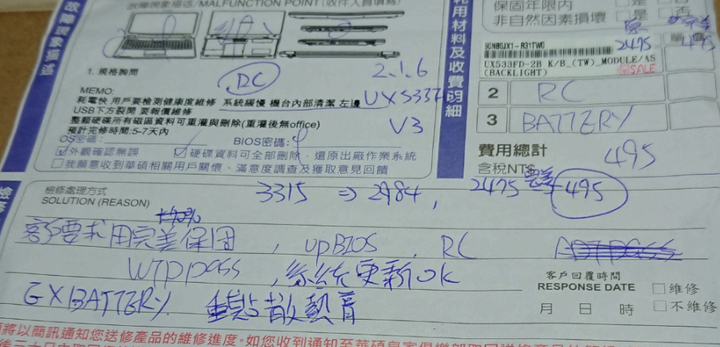 故障現象描述/MALFUNCTION POINT(收件人員填寫)
故障現象描述
1. 規格詢問
RC
2.1.6
UX533F
V3
MEMO:
耗電快 用戶要檢測健康度維修 系統緩慢 機台內部清潔 左邊
USB下方裂開 要報價維修
整顆硬碟所有磁區資料可重灌與刪除(重灌後無office)
預計完修時間:5-7天內
OS密碼:
BIOS密碼:
外觀確認無誤
硬碟資料可全部刪除、還原出廠作業系統
我願意收到華碩相關用戶關懷、滿意度調查及獲取意見回饋
耗用材料及收費明細
保固年限內 是 否
非自然因素損壞 是 否
2475
495
90NB0JX1-R31TW0
UX533FD-2B K/B_(TW)_MODULE/AS
(BACKLIGHT)
SALE
2
RC
3
BATTERY
費用總計
含稅NT$
495
檢修處理方式
SOLUTION (REASON)
3315 ⇒ 2984, 2475 495
客要求用完美保固, upBIOS, RC
WTPpass, 系統更新OK
EX BATTERY 重點散熱膏
客戶回覆時間
RESPONSE DATE
月 日 時
維修
不維修
將以簡訊通知您送修產品的維修進度。如您收到通知至華碩皇家俱樂部取回送修產品